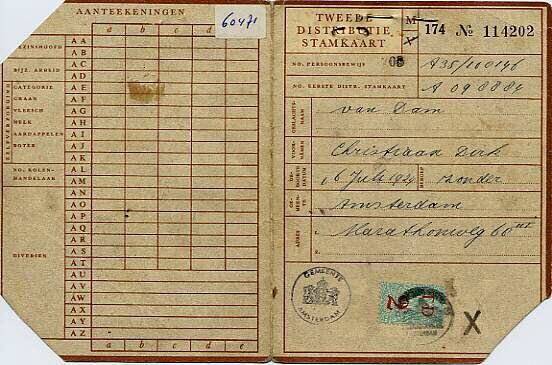 AANTEEKENINGEN
60471
a b c d e
GEZINSHOOFD
BIJZ. ARBEID
ZELFVERZORGING
CATEGORIE
GRAAN
VLEESCH
MELK
AARDAPPELEN
BOTER
NO. KOLEN-
HANDELAAR
DIVERSEN
AA
AB
AC
AD
AE
AF
AG
AH
AI
AJ
AK
AL
AM
AN
AO
AP
AQ
AR
AS
AT
AU
AV
AW
AX
AY
AZ
a b c d e
TWEEDE
DISTRIBUTIE
STAMKAART
M
174 No 114202
NO. PERSOONSBEWIJS A35/100146
NO. EERSTE DISTR. STAMKAART A 098884
GESLACHTS-
NAAM
van Dam
VOOR-
NAMEN
Christiaan Dirk
GE-
BOORTE
DATUM
6 Juli 1924
BEROEP
zonder
GE-
MEEN-
TE
Amsterdam
ADRES
1. Marathonweg 60 III
2.
GEMEENTE
AMSTERDAM
TD
2
X